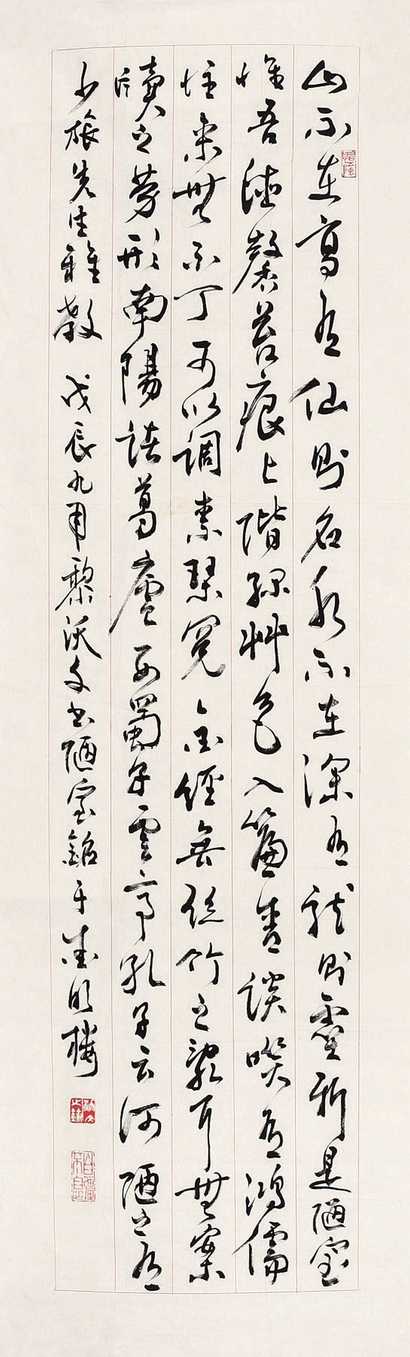 山不在高有仙則名水不在深有龍則靈斯是陋室
惟吾德馨苔痕上階綠艸色入簾青談咲有鴻儒
往來無白丁可以調素琴閱金經無絲竹之亂耳無案
牘之勞形南陽諸葛廬西蜀子雲亭孔子云何陋之有
少旅先生雅教 戊辰九月黎沃文書陋室銘于明樓